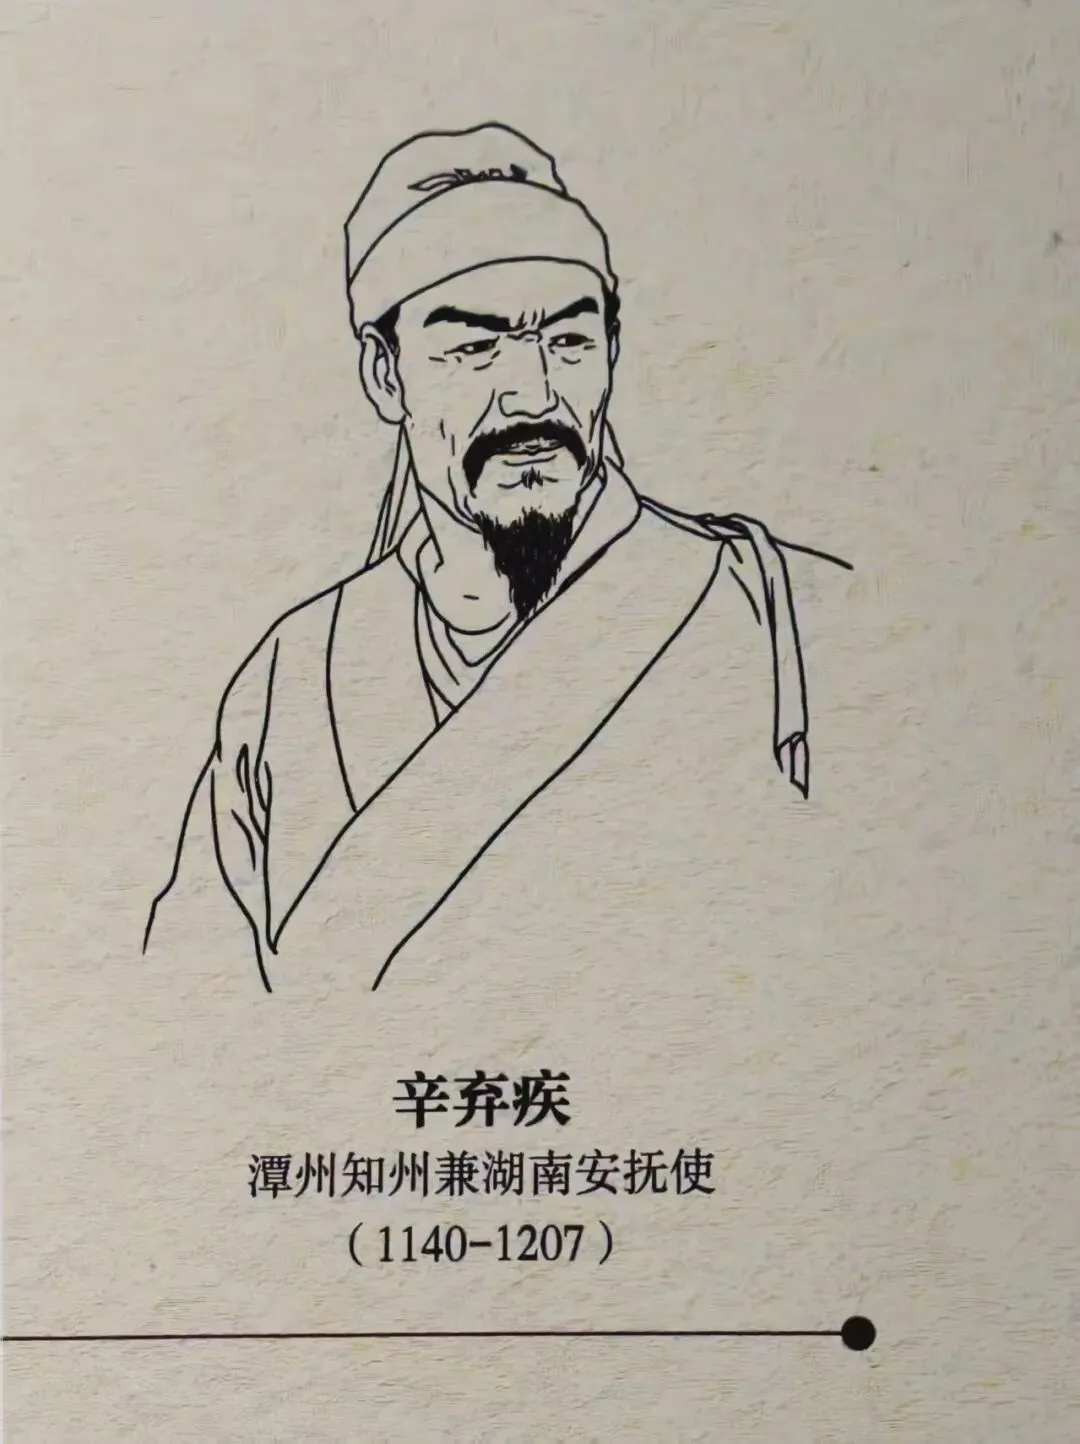 辛弃疾
潭州知州兼湖南安抚使
（1140-1207）